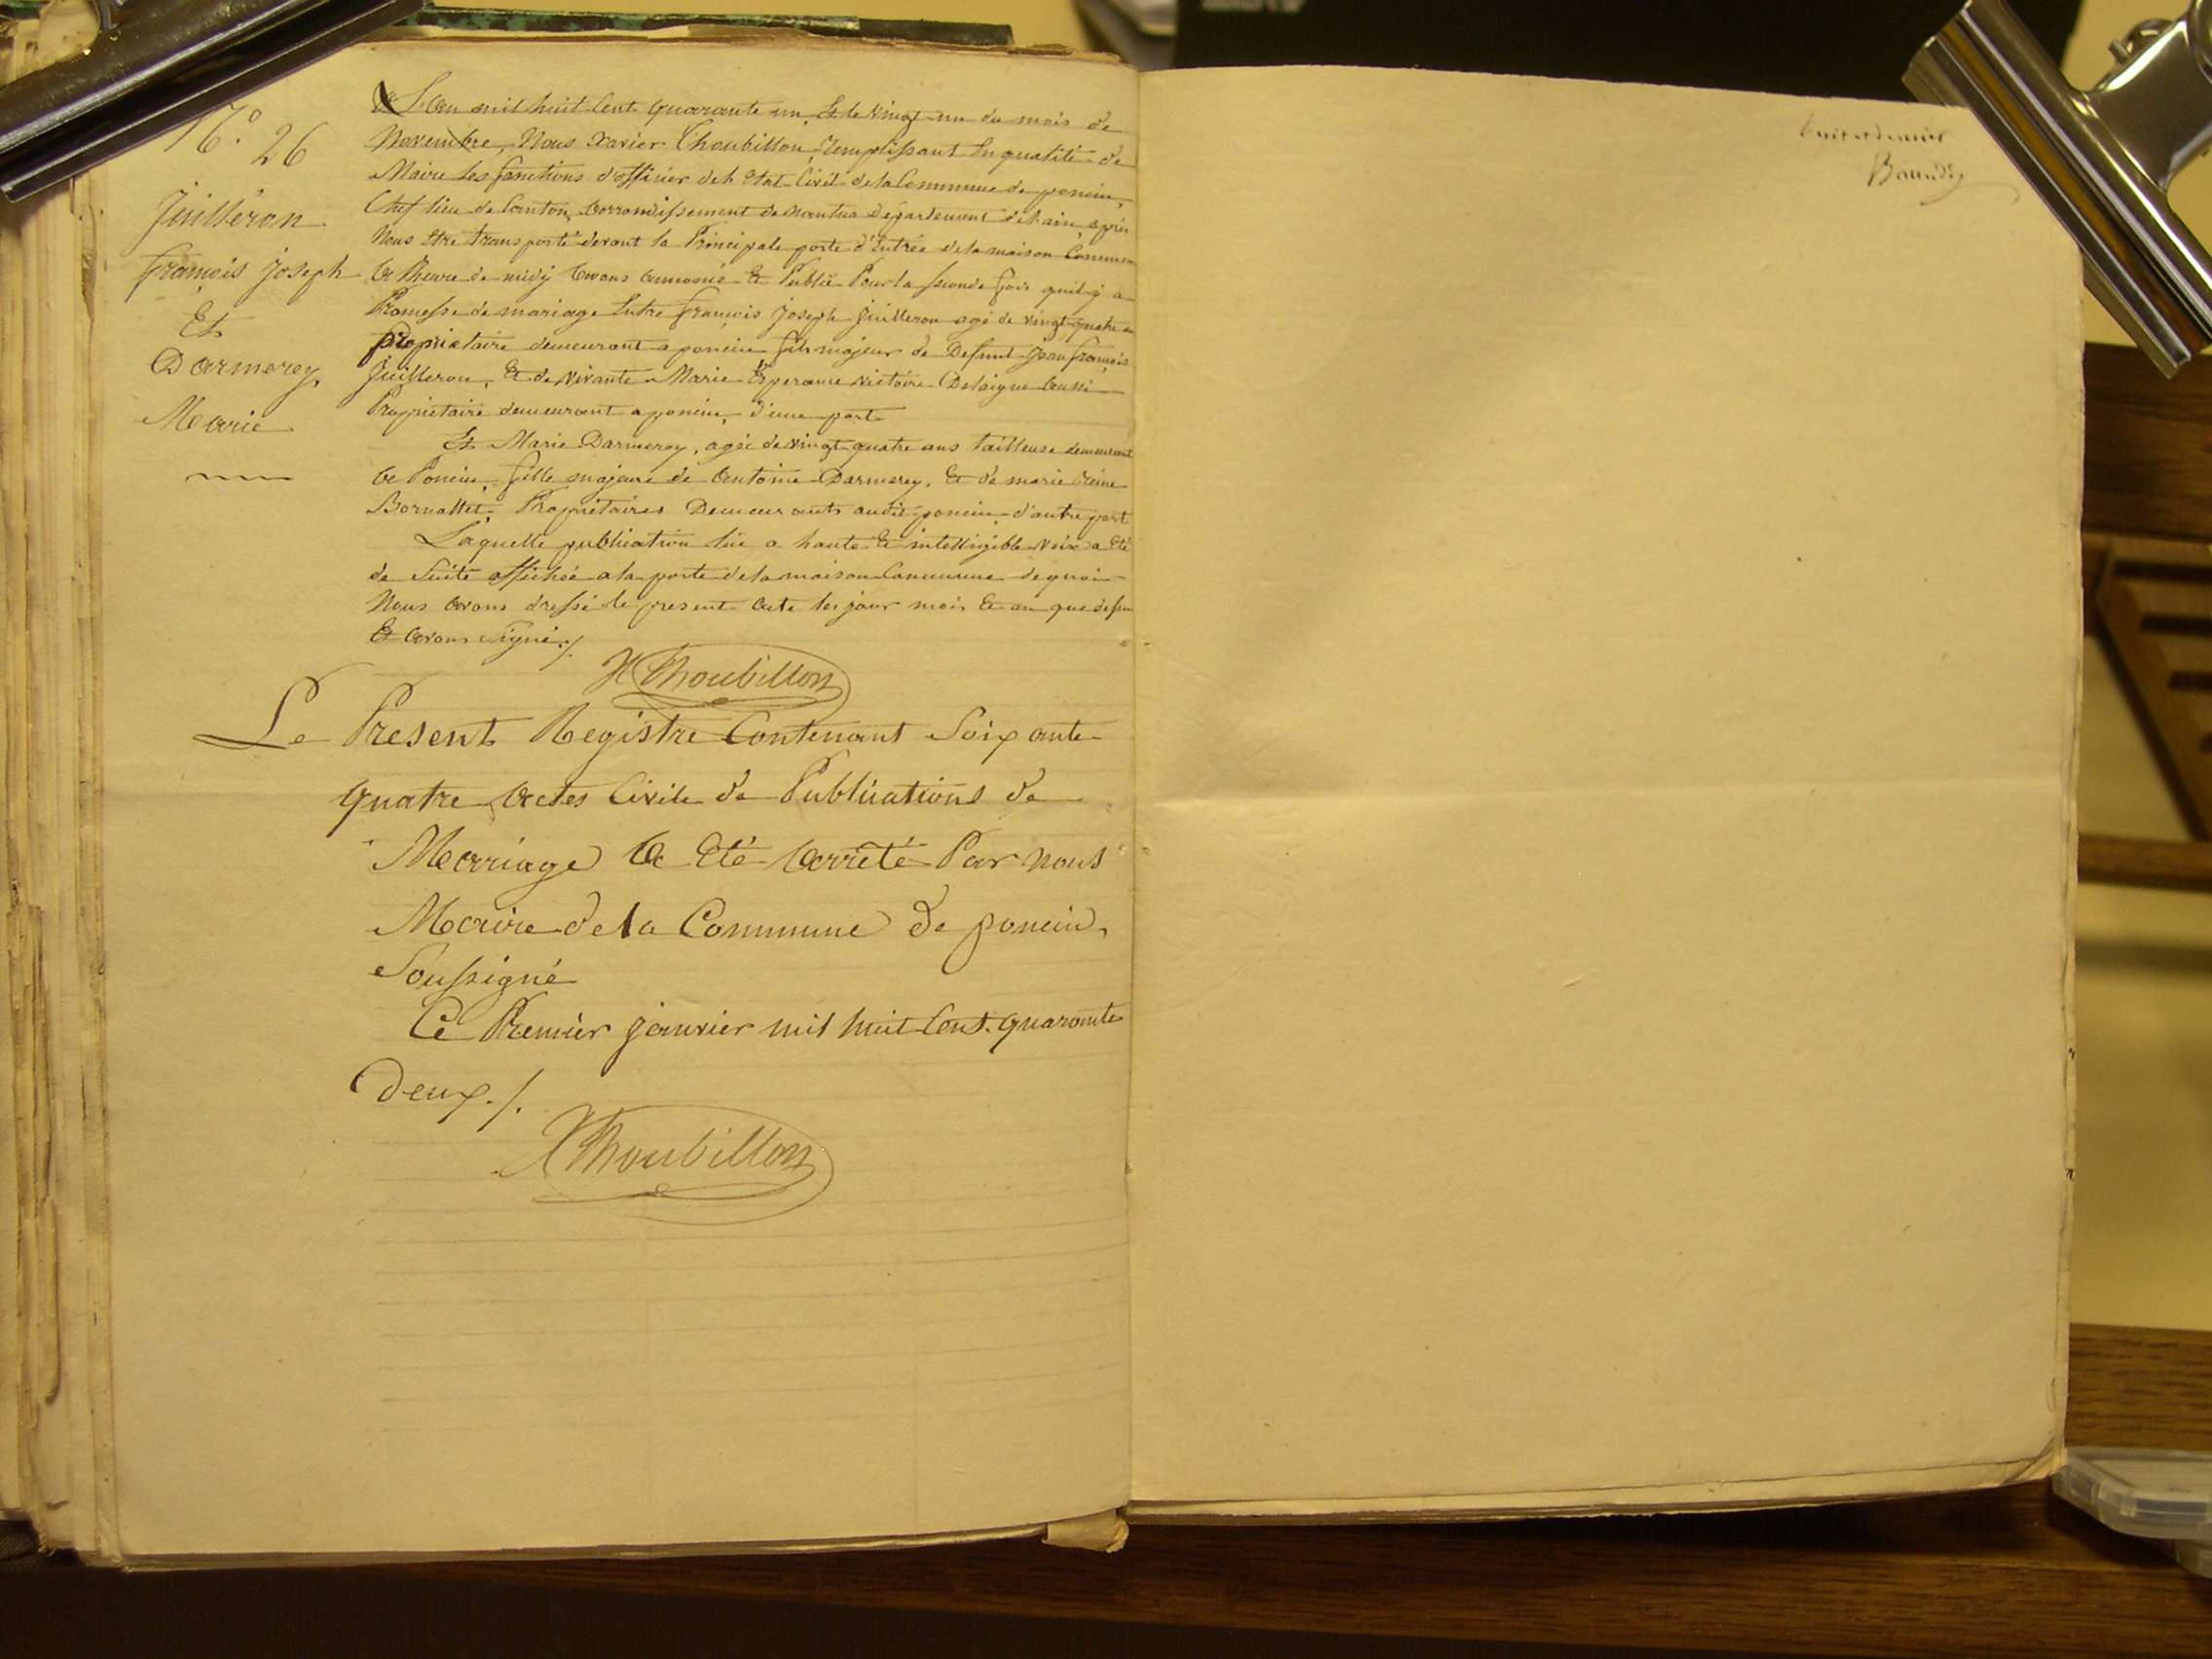 N.° 26
Juilleron
françois joseph
Et
Darmerey
Marie
L'an mil huit Cent quarante un, Et le vingt-un du mois de
Novembre, Nous Xavier Thoubillon, remplissant En qualité de
Maire les fonctions d'officier de l'Etat-Civil de la Commune de poncin,
Chef lieu de Canton, arrondissement de nantua département de l'ain, après
Nous Etre transporté devant la Principale porte d'Entrée de la maison Commune
a l'heure de midy avons annoncé Et Publié Pour la seconde fois quil y a
Promesse de mariage Entre françois joseph juilleron agé de vingt-quatre
propriétaire demeurant a poncin fils majeur de Defunt jean françois
juilleron, Et de vivante Marie Esperance victoire Delaigue aussi
Propriétaire demeurant a poncin, d'une part
Et Marie Darmerey, agée de vingt-quatre ans tailleuse demeurant
a Poncin, fille majeure de antoine Darmerey, Et de marie reine
Bornallet, Propriétaires Demeurants audit poncin, d'autre part
Laquelle publication lue a haute Et intelligible voix a Eté
de suite affichée a la porte de la maison Commune de quoi
Nous avons dressé le present acte les jour mois Et an que dessus
Et avons signé ./.
X Thoubillon
Le Present Registre Contenant Soixante
quatre actes Civils de Publications de
Marriage a Eté arrêté Par nous
Maire de la Commune de poncin,
Soussigné
Ce Premier janvier mil huit Cent quarante
deux ./.
X Thoubillon
huit et dernier